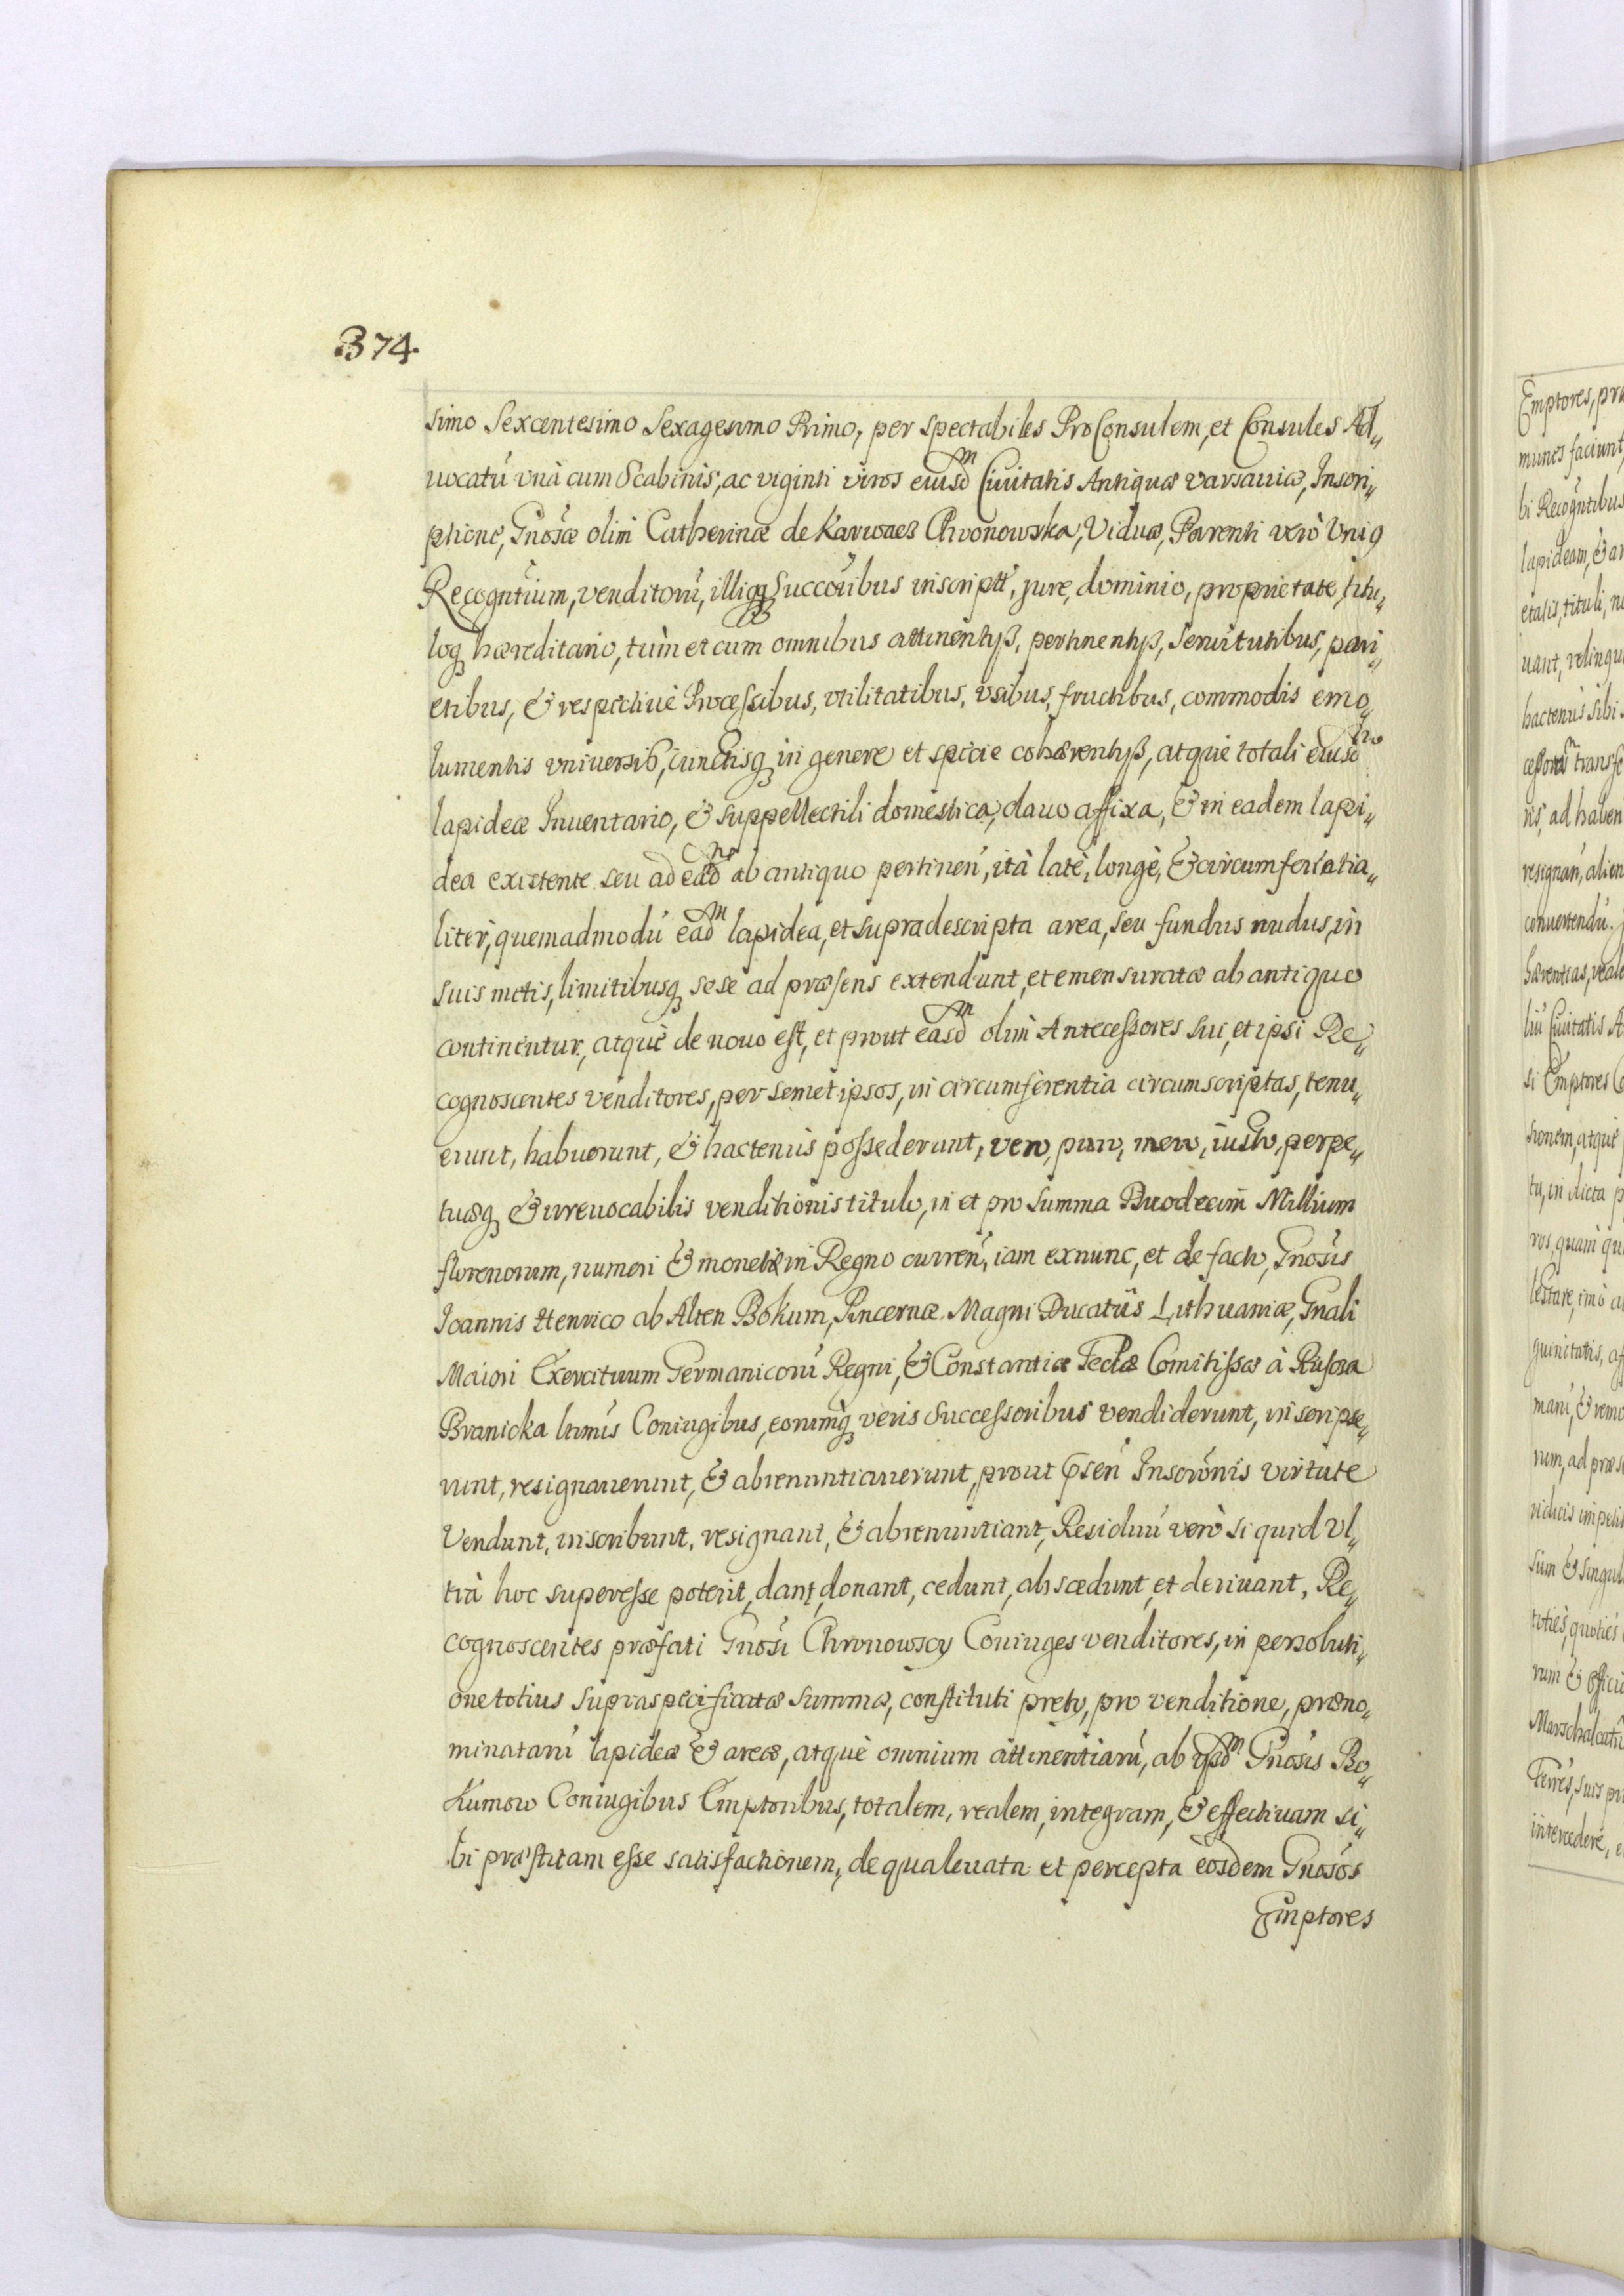 374.
simo Sexcentesimo Sexagesimo Primo, per spectabiles ProConsulem, et Consules Ad„
uocatú vnà cum Scabinis, ac viginti viros eiusdm Ciuitatis Antiquæ Varsauiæ, Inscri„
ptione, Gnosæ olim Catherinæ de Karwacz Chronowska, Viduæ, Parenti verò Vnig
Recogntium, venditorú, illiqq Succoribus inscriptt, jure, dominio, proprietate, titu„
loq hæreditario, tùm et cum omnibus attinentyß, pertinentyß, Seruitutibus, pari„
etibus, & respectiuè Processibus, vtilitatibus, vsibus, fructibus, commodis emo„
lumentis vniuersis, cunctisq in genere et specie cohærentyß, atque totali eiusd
lapideæ Inuentario, & suppellectili domestica, clauo affixa, & in eadem lapi„
dea existente seu ad eand ab antiquo pertinen, ità latè, longè, & circumferentia„
liter, quemadmodú eadm lapidea, et supradescripta area, seu fundus nudus, in
suis metis, limitibusq sese ad præsens extendunt, et emensuratæ ab antiquo
continentur, atquè de nouo est, et prout easdm olim Antecessores sui, et ipsi Re„
cognoscentes venditores, per semetipsos, in circumferentia circumscriptas, tenu„
erunt, habuerunt, & hactenus possederunt, vero, puro, mero, iusto, perpe„
tuoq & irreuocabilis venditionis titulo, in et pro Summa Duodecim Millium
florenorum, numeri & monetæ in Regno curren, iam exnunc, et de facto, Gnosis
Joannis Henrico ab Alten Bokum, Pincernæ Magni Ducatûs Lithuaniæ, Gnali
Maiori Exercituum Germanicorú Regni, & Constantiæ Teclæ Comitissæ à Ruszcza
Branicka ltimis Coniugibus, eorumq veris Successoribus vendiderunt, inscripse„
runt, resignauerunt, & abrenuntiauerunt, prout psen Inscrónis virtute
Vendunt, inscribunt, resignant, & abrenuntiant, Residuú verò si quid vl„
trà hoc superesse poterit, dant, donant, cedunt, abscedunt, et deriuant, Re„
cognoscentes præfati Gnosi Chronowscy Coniuges venditores, in persoluti„
one totius supraspecificatæ Summæ, constituti prety, pro venditione, præno„
minatarú lapideæ & areæ, atquè omnium attinentiarú, ab ysdm Gnosis Bo„
kumow Coniugibus Emptoribus, totalem, realem, integram, & effectiuam si„
bi præstitam esse satisfactionem, de qua leuata et percepta eosdem Gnosos
Emptores
Emptores, pr
bi Recogntibus
lapideam, & a
etatis, tituli, n
uant, relinqu
hactenus sibi
ris, ad haben
resignan, alien
conuertendú
liú Ciuitatis A
si Emptores C
sionem, atquè
ty, in dicta p
ros, quam qu
mani, & remo
rum, ad præs
sum & singul
toties, quoties
rum & offici
Marschalcatú
intercedere, e